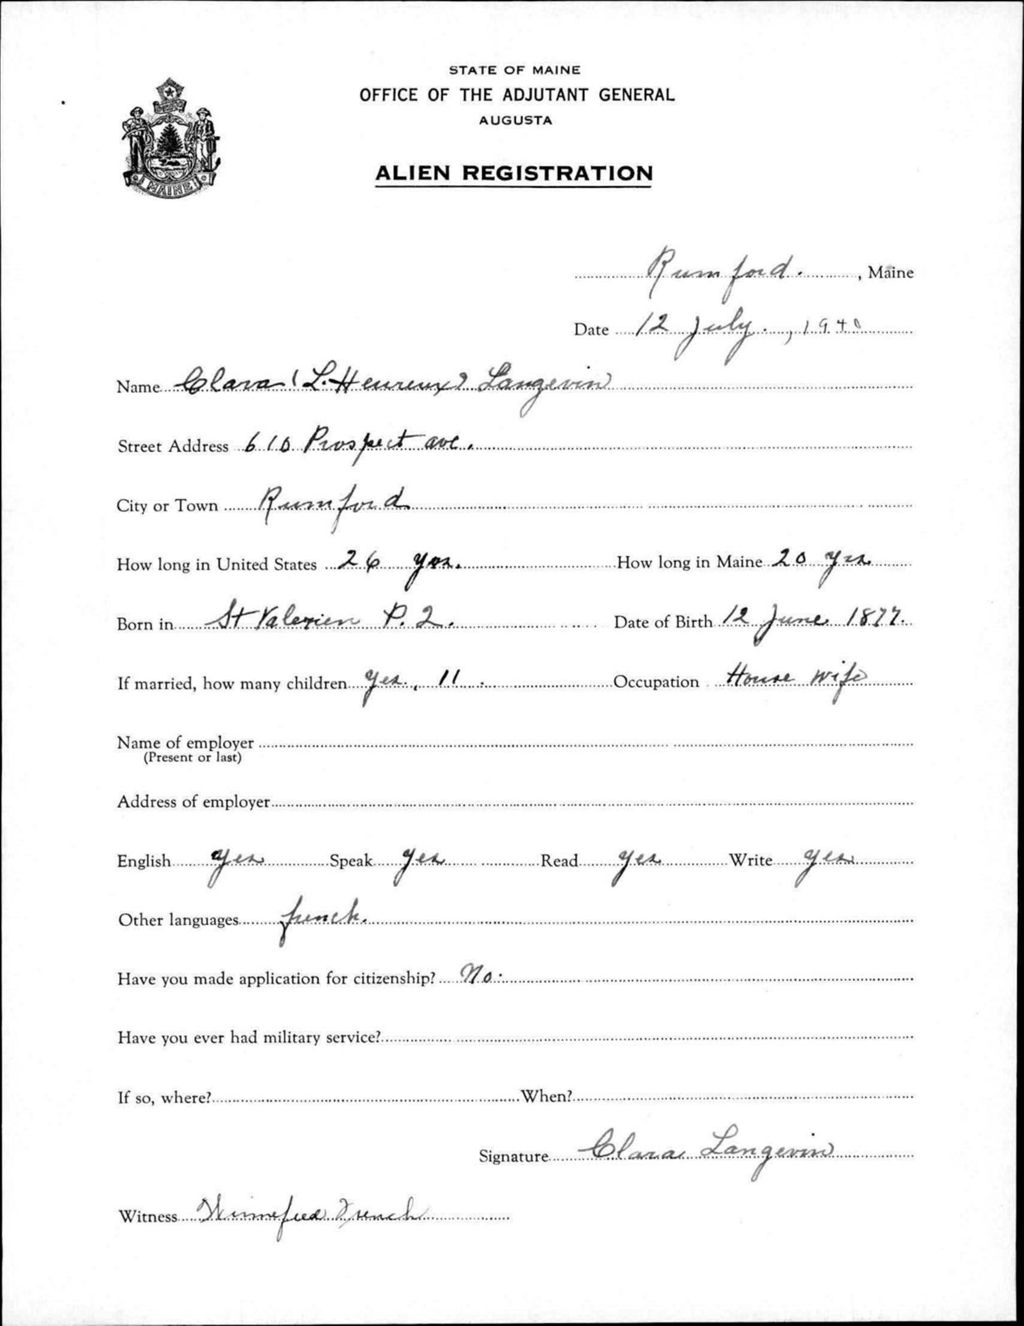 STATE OF MAINE
OFFICE OF THE ADJUTANT GENERAL
AUGUSTA
MAINE
ALIEN REGISTRATION
Rumford. , Maine
Date 12 July. , 1940
Name Clara (L.Heureux) Langevin
Street Address 610 Prospect ave.
City or Town Rumford
How long in United States 26 yrs. How long in Maine 20 yrs.
Born in St Valerien P. Q. Date of Birth 12 June 1877.
If married, how many children yes., 11. Occupation House wife
Name of employer
(Present or last)
Address of employer
English yes Speak yes Read yes Write yes
Other languages french.
Have you made application for citizenship? No.
Have you ever had military service?
If so, where? When?
Signature Clara Langevin
Witness Winnefred French